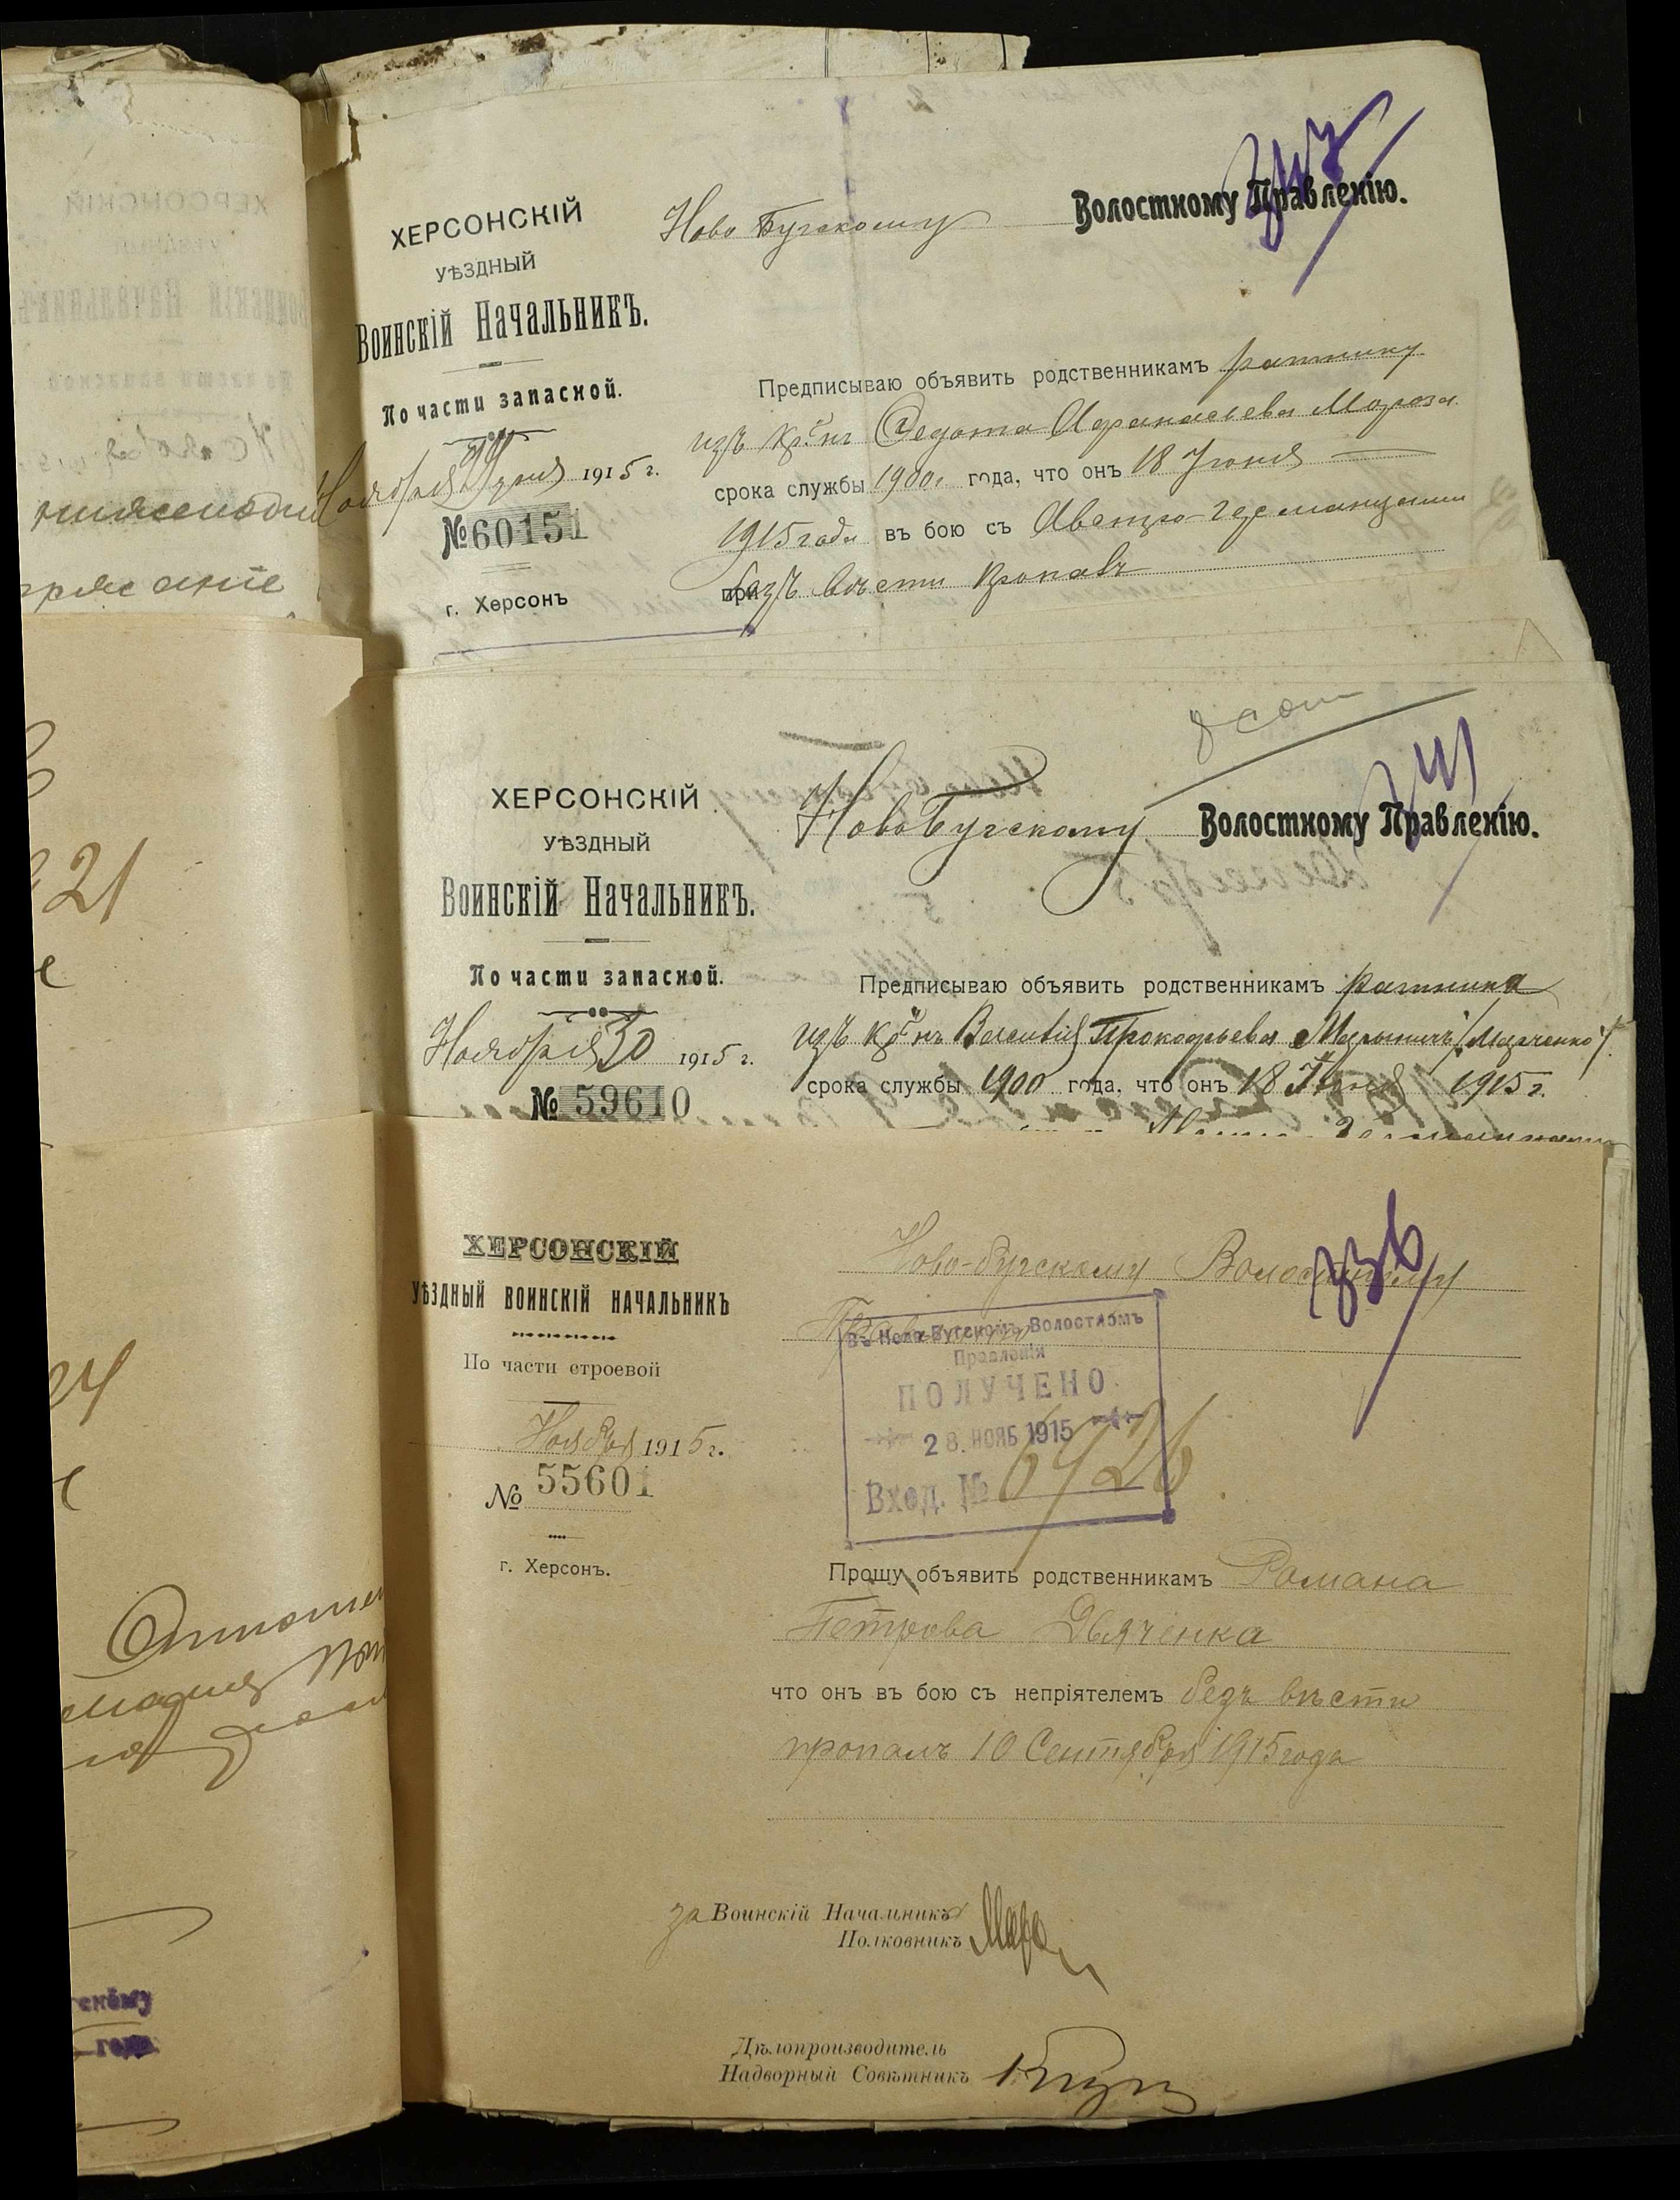 ХЕРСОНСКІЙ
УѢЗДНЫЙ
ВОИНСКІЙ НАЧАЛЬНИКЪ.
По части запасной.
Ноября 1915 г.
№ 60151
г. Херсонъ
Ново Бугскому Волостному Правленію.
Предписываю объявить родственникамъ ратнику
изъ кр-нъ Федота Афанасьева Мороза
срока службы 1900 года, что онъ 18 Іюня
1915 года въ бою съ Австро-Германцами
безъ вѣсти пропавъ
ХЕРСОНСКІЙ
УѢЗДНЫЙ
ВОИНСКІЙ НАЧАЛЬНИКЪ.
По части запасной.
Ноября 30 1915 г.
№ 59610
НовоБугскому Волостному Правленію.
Предписываю объявить родственникамъ ратника
изъ кр-нъ Василія Прокофьева
срока службы 1900 года, что онъ 18 Іюня 1915 г.
ХЕРСОНСКІЙ
УѢЗДНЫЙ ВОИНСКІЙ НАЧАЛЬНИКЪ
По части строевой
Ноября 1915 г.
№ 55601
г. Херсонъ.
336
Ново-Бугскому Волостному
Правленію
Въ Ново-Бугскомъ Волостномъ
Правленіи
ПОЛУЧЕНО
28. НОЯБ 1915
Вход. № 6726
Прошу объявить родственникамъ Романа
Петрова Дьяченка
что онъ въ бою съ непріятелемъ безъ вѣсти
пропалъ 10 Сентября 1915 года
за Воинскій Начальникъ
Полковникъ
Дѣлопроизводитель
Надворный Совѣтникъ
21
24